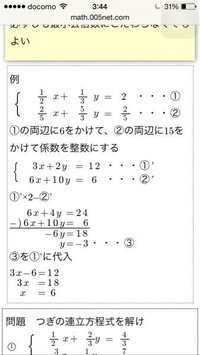 docomo 3:44 31%
math.005net.com
よい
例
1/2 x + 1/3 y = 2 ・・・①
2/5 x + 5/3 y = 2/5 ・・・②
①の両辺に6をかけて、②の両辺に15を
かけて係数を整数にする
3x+2y = 12 ・・・①'
6x+10y = 6 ・・・②'
①'×2−②'
6x+4y=24
−)6x+10y= 6
−6y=18
y=−3 ・・・③
③を①'に代入
3x−6=12
3x =18
x = 6
問題 つぎの連立方程式を解け
① 1/2 x + 2/3 y = 4/3